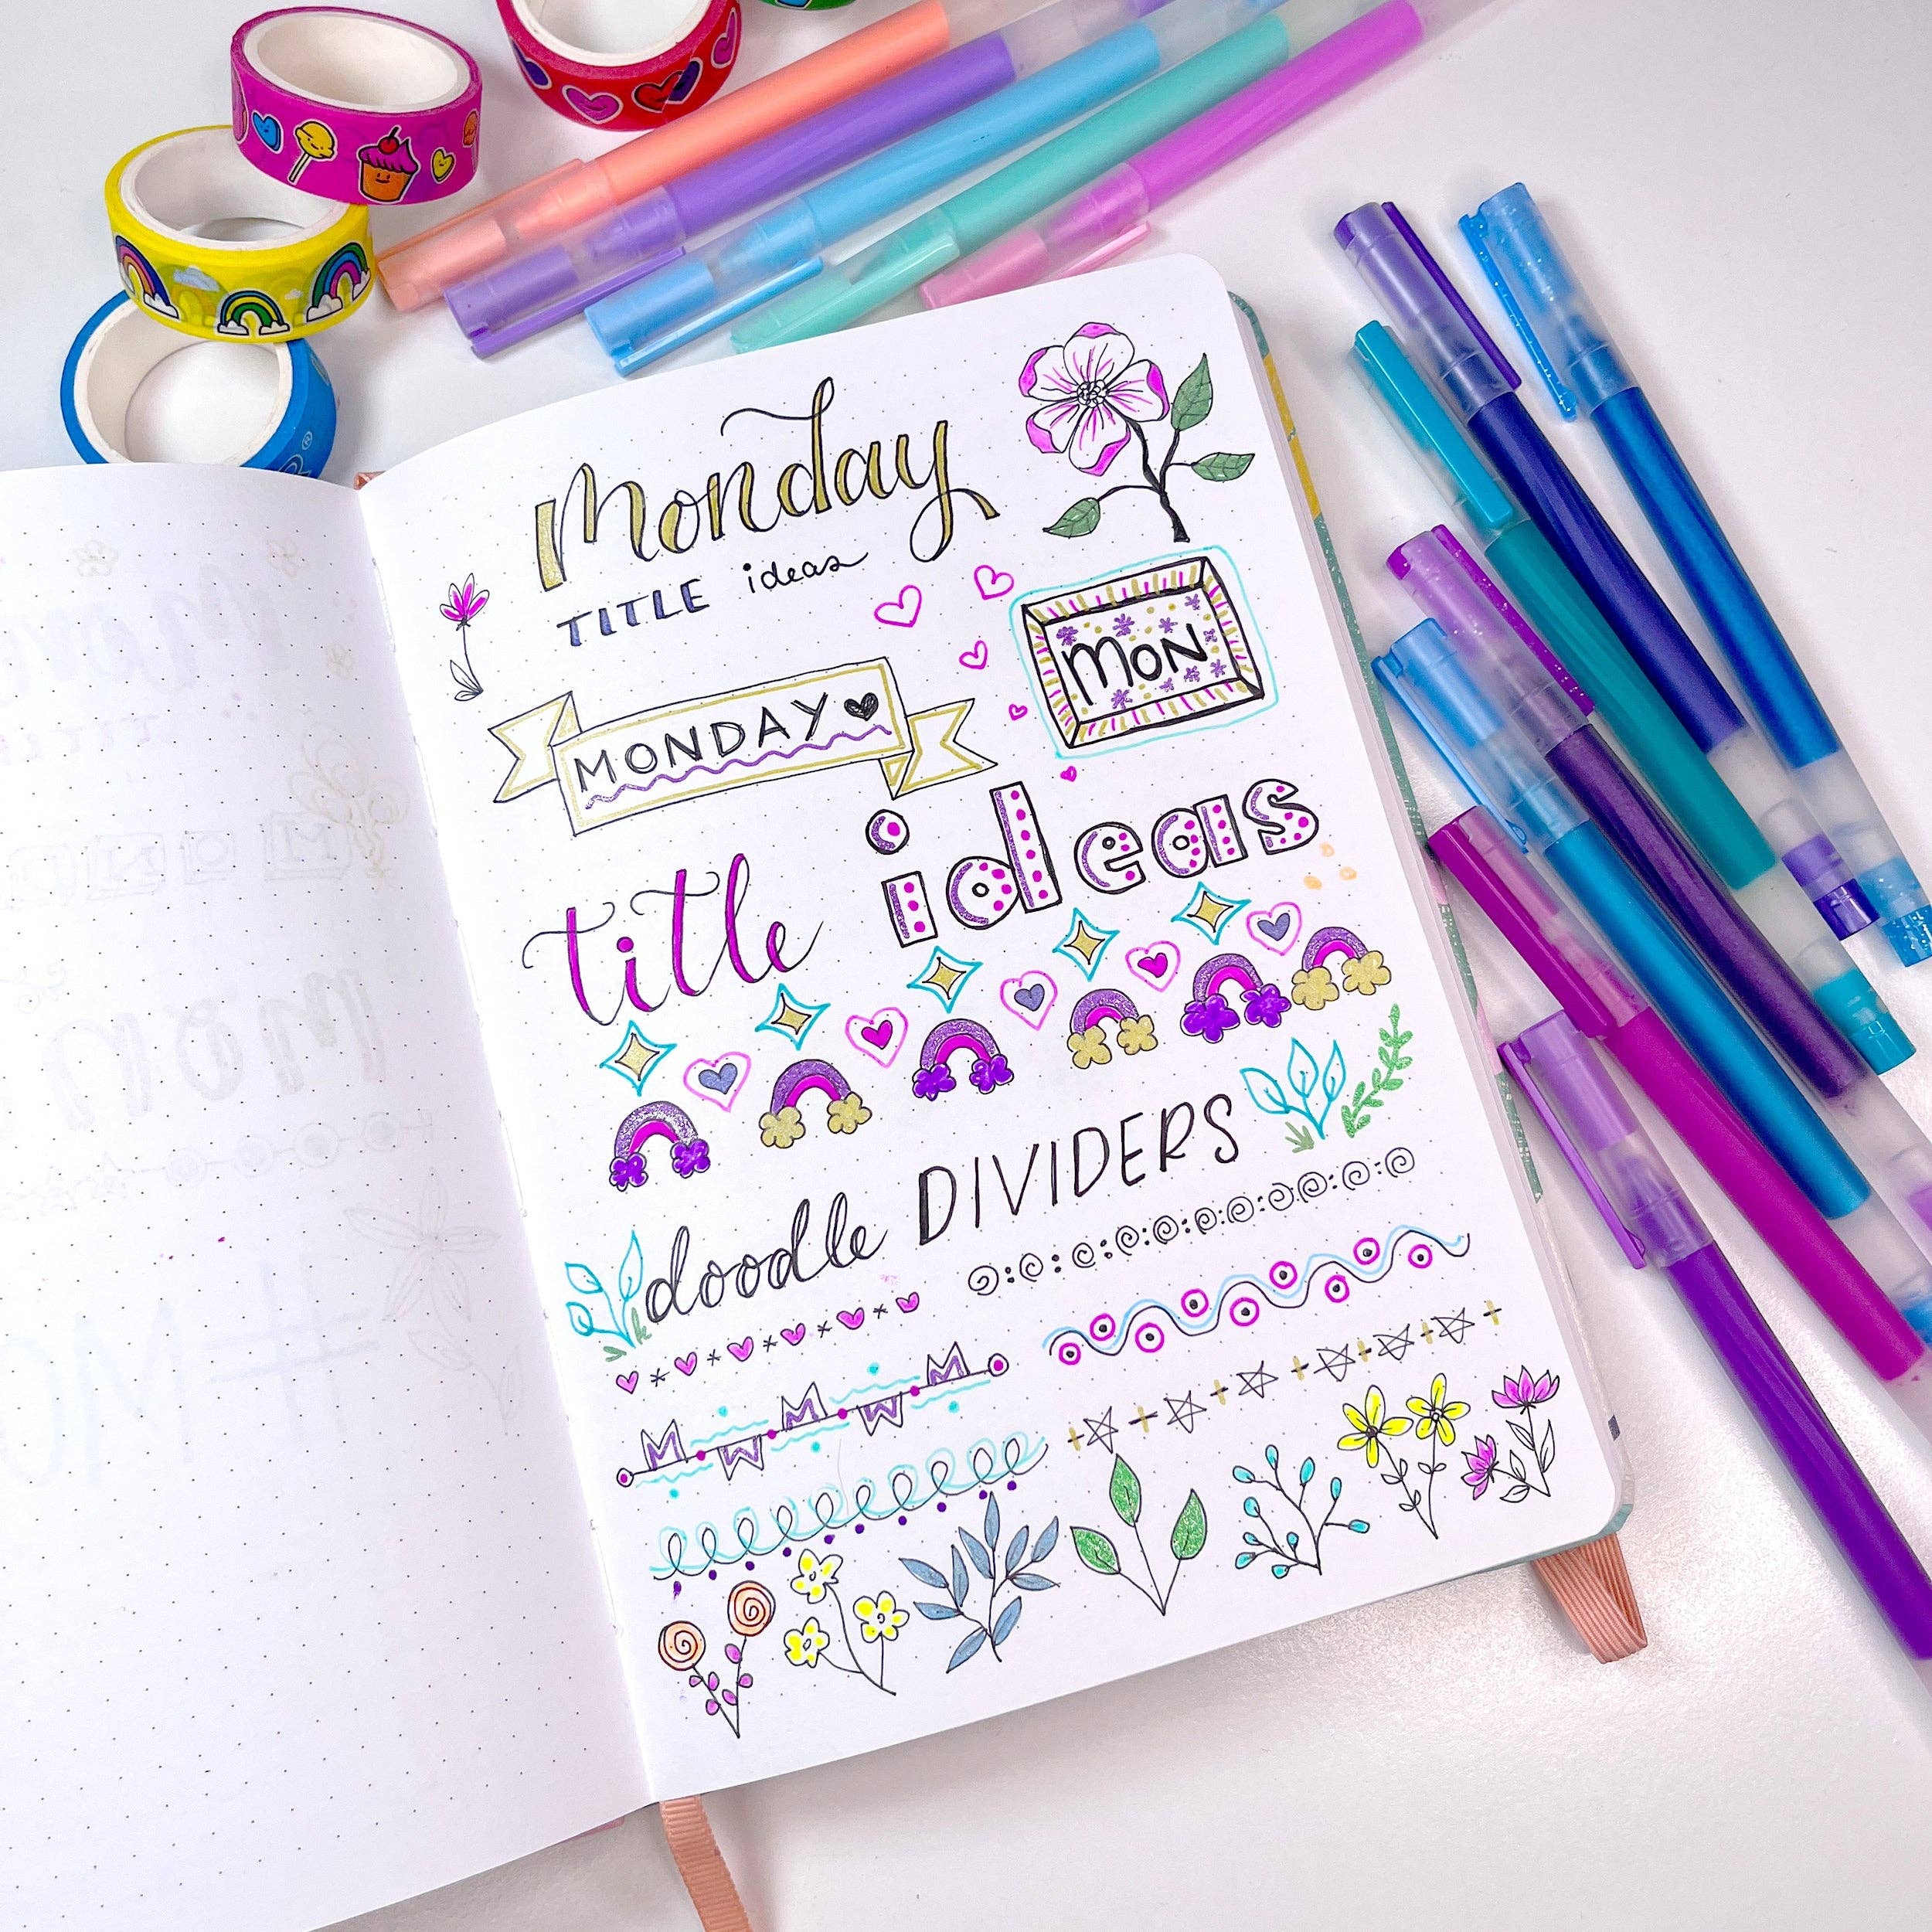 Monday
TITLE ideas
MON
MONDAY
title ideas
doodle DIVIDERS
M W M W M